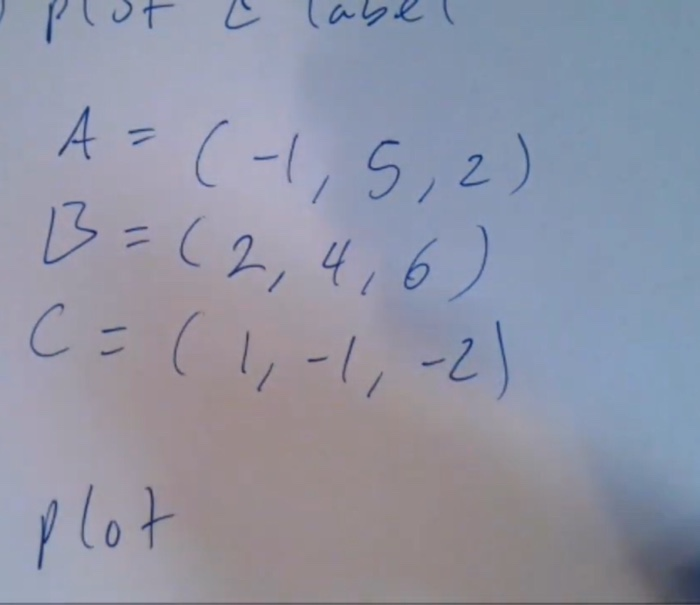 plot & label
A = (-1, 5, 2)
B = (2, 4, 6)
C = (1, -1, -2)
plot